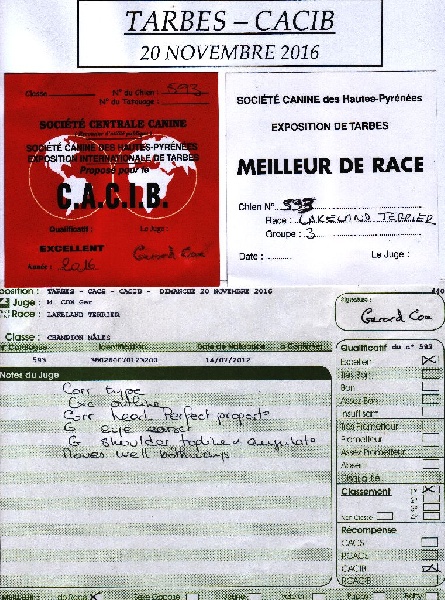 TARBES – CACIB
20 NOVEMBRE 2016
Classe N° du Chien : 593
N° du Tatouage :
SOCIÉTÉ CENTRALE CANINE
SOCIÉTÉ CANINE DES HAUTES-PYRÉNÉES
EXPOSITION INTERNATIONALE DE TARBES
Proposé pour le
C.A.C.I.B.
Qualificatif : Le Juge :
EXCELLENT
Année : 2016 Gerard Cox
SOCIÉTÉ CANINE des Hautes-Pyrénées
EXPOSITION DE TARBES
MEILLEUR DE RACE
Chien N° 593
Race : LAKELAND TERRIER
Groupe : 3
Date : Le Juge :
position : TARBES - CACS - CACIB - DIMANCHE 20 NOVEMBRE 2016
Juge : M. COX Ger
Race : LAKELAND TERRIER
Signature :
Gerard Cox
Classe : CHAMPION MÂLES
Date de Naissance
593 14/07/2012
Notes du Juge
Corr type
outline
Corr head Perfect proports
G eye
G shoulder
Moves well both ways
Qualificatif du n° 593
Excellent
Très Bon
Bon
Assez Bon
Insuffisant
Très Prometteur
Prometteur
Assez Prometteur
Absent
Disqualifié
Classement
Non Classé
Récompense
CACS
RCACS
CACIB
RCACIB